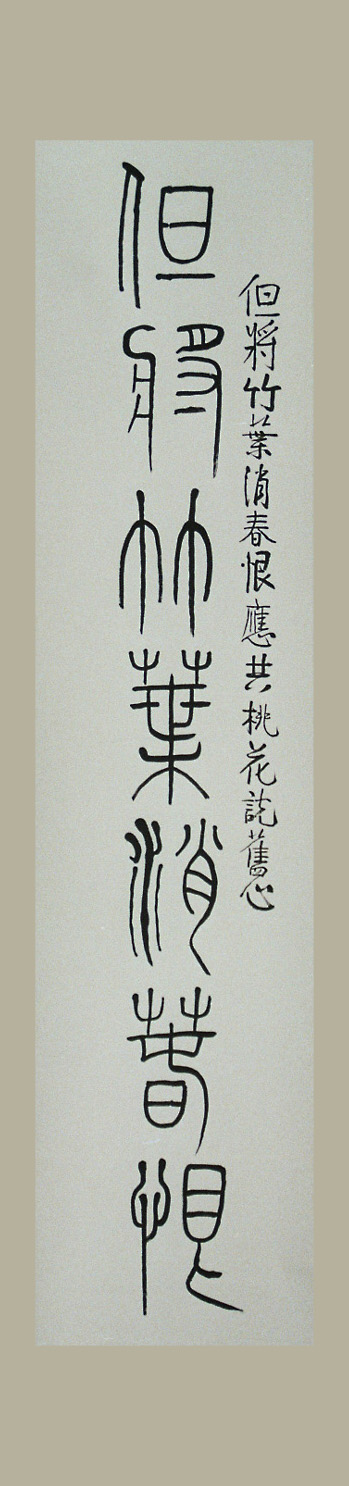 但將竹葉消春恨應共桃花說舊心
但將竹葉消春恨